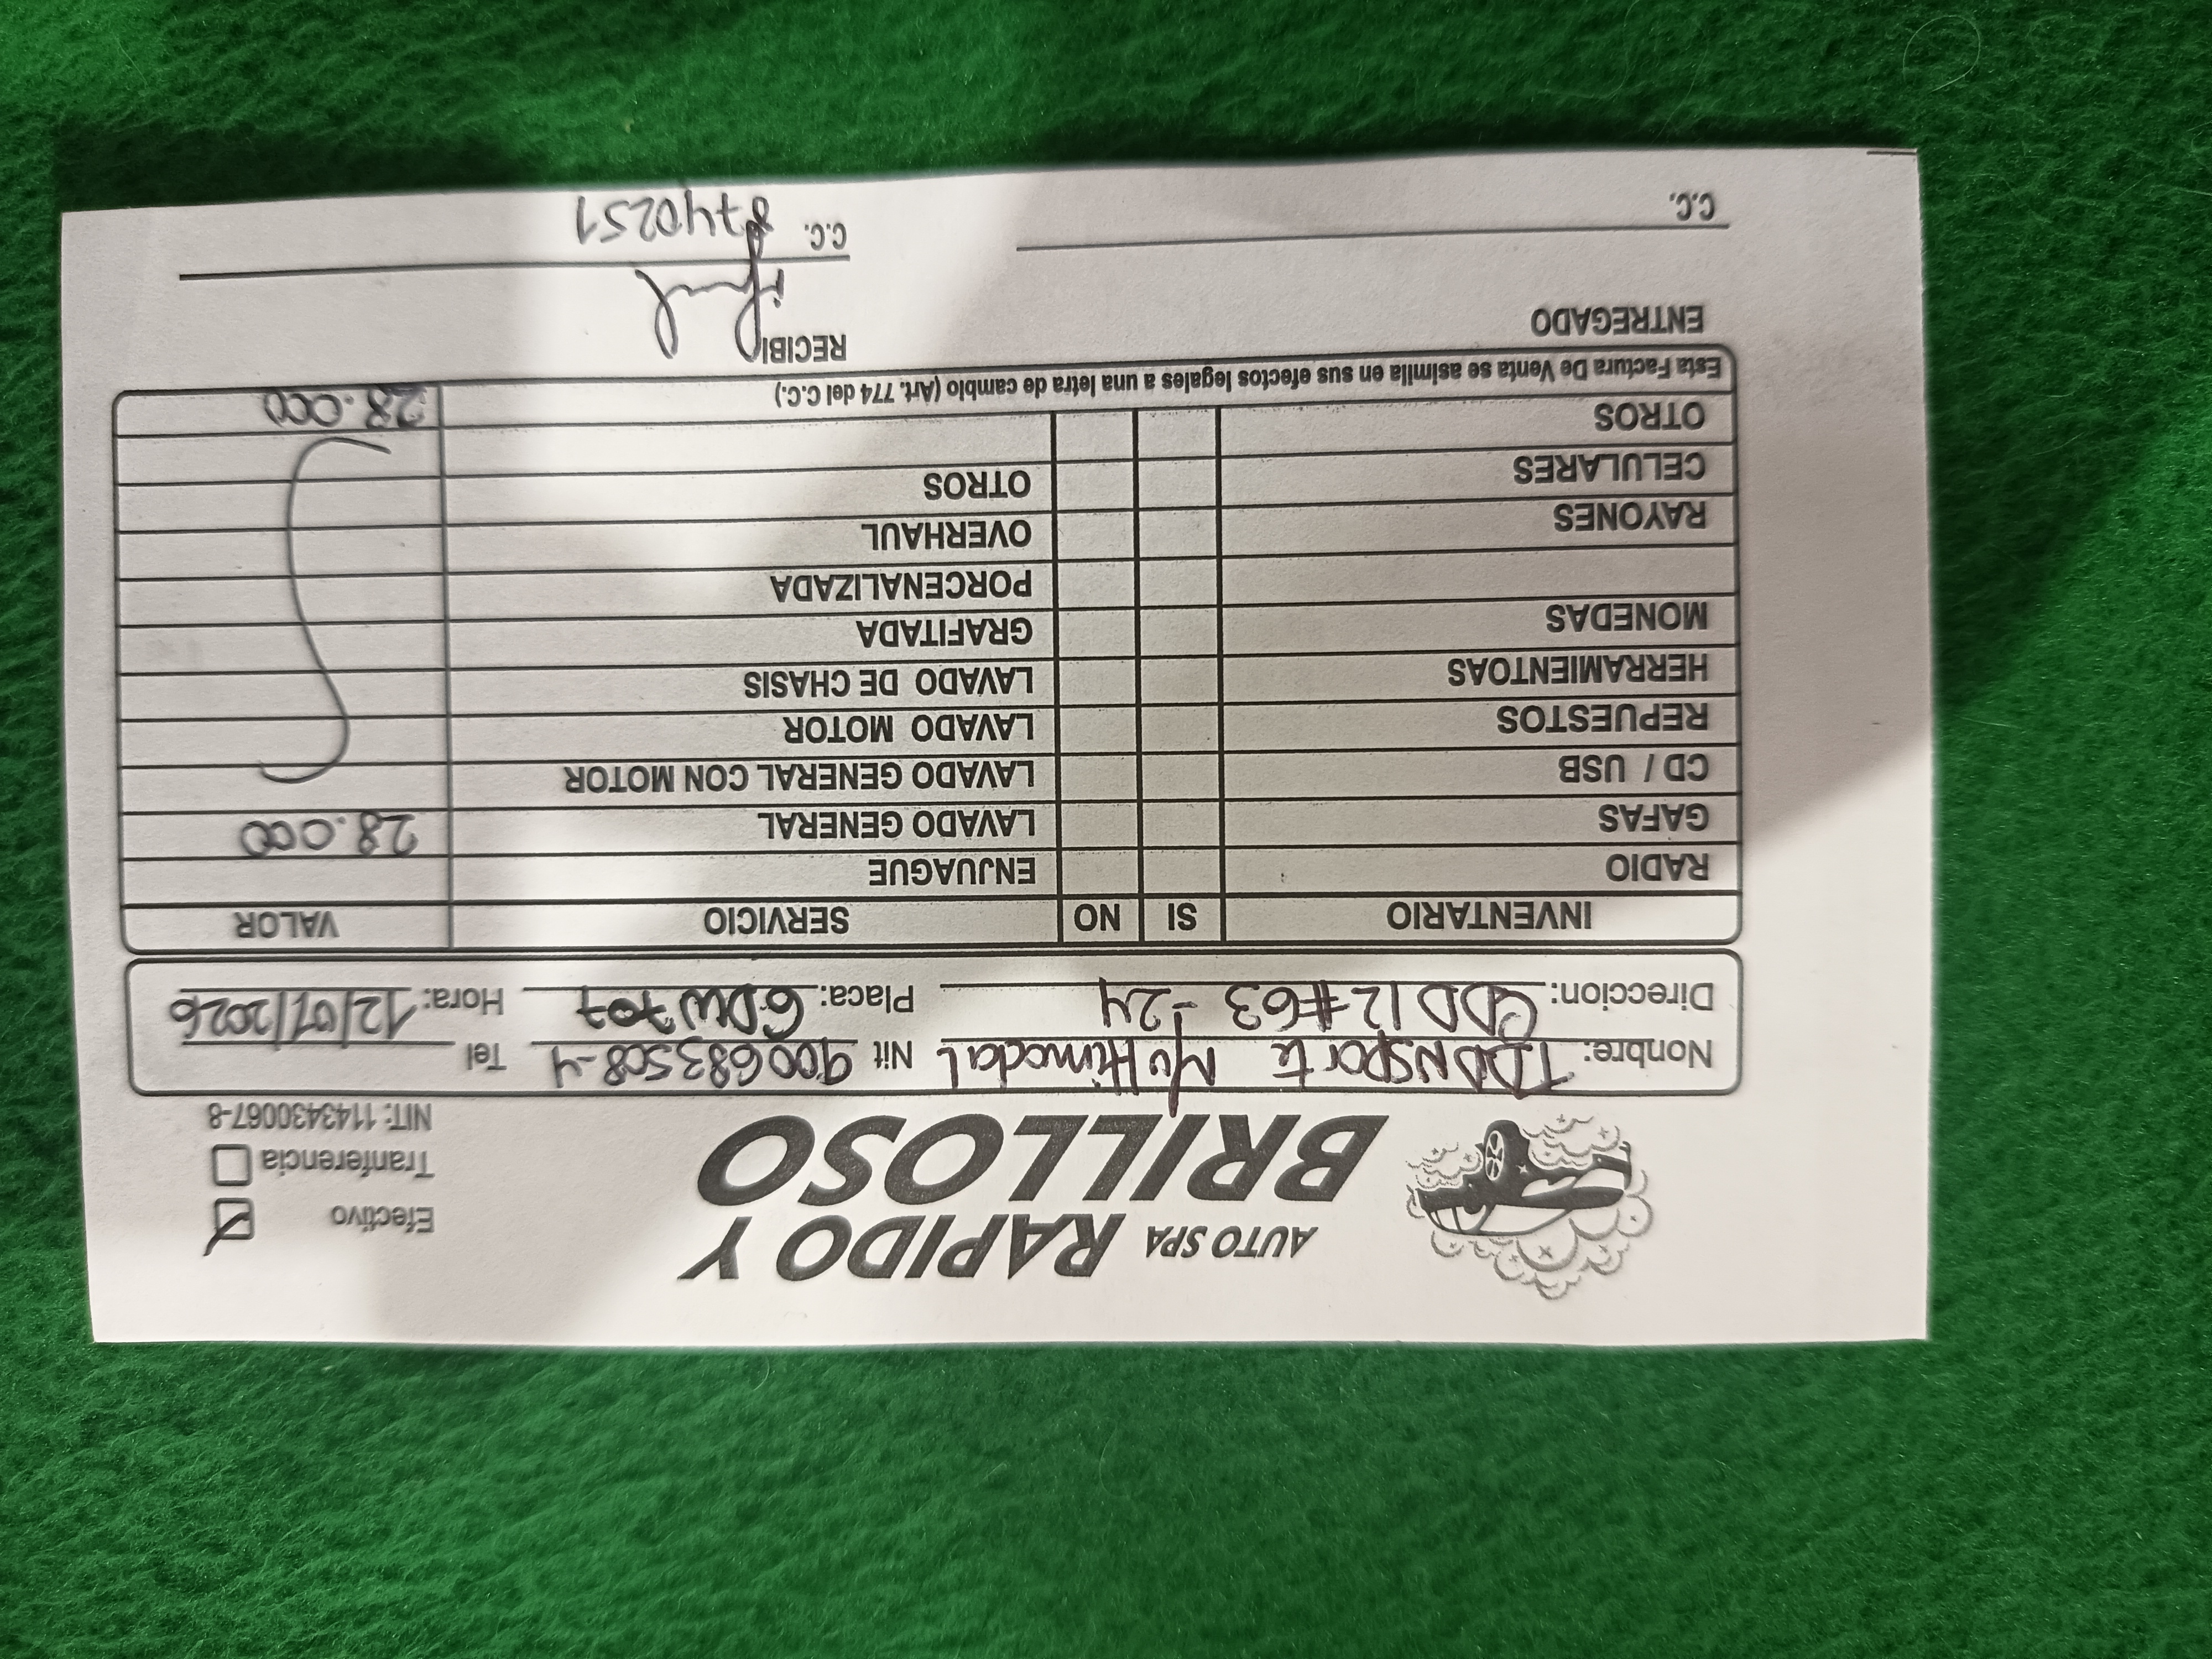 AUTO SPA RAPIDO Y
BRILLOSO
Efectivo
Tranferencia
NIT: 1143430067-8
Nonbre: TRANSporte Multimodal Nit 900683508-4 Tel
Direccion: CRA 12 #63 -24 Placa: GDW707 Hora: 12/07/2026
INVENTARIO SI NO SERVICIO VALOR
RADIO ENJUAGUE
GAFAS LAVADO GENERAL 28.000
CD / USB LAVADO GENERAL CON MOTOR
REPUESTOS LAVADO MOTOR
HERRAMIENTOAS LAVADO DE CHASIS
MONEDAS GRAFITADA
PORCENALIZADA
RAYONES OVERHAUL
CELULARES OTROS
OTROS
Esta Factura De Venta se asimila en sus efectos legales a una letra de cambio (Art. 774 del C.C.) 28.000
ENTREGADO RECIBI
C.C. C.C. 8740251